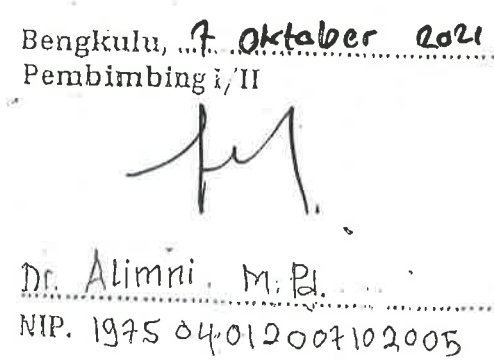 Bengkulu, 7 Oktober 2021
Pembimbing I/II
Dr. Alimni. M.Pd.
NIP. 1975 04012007102005